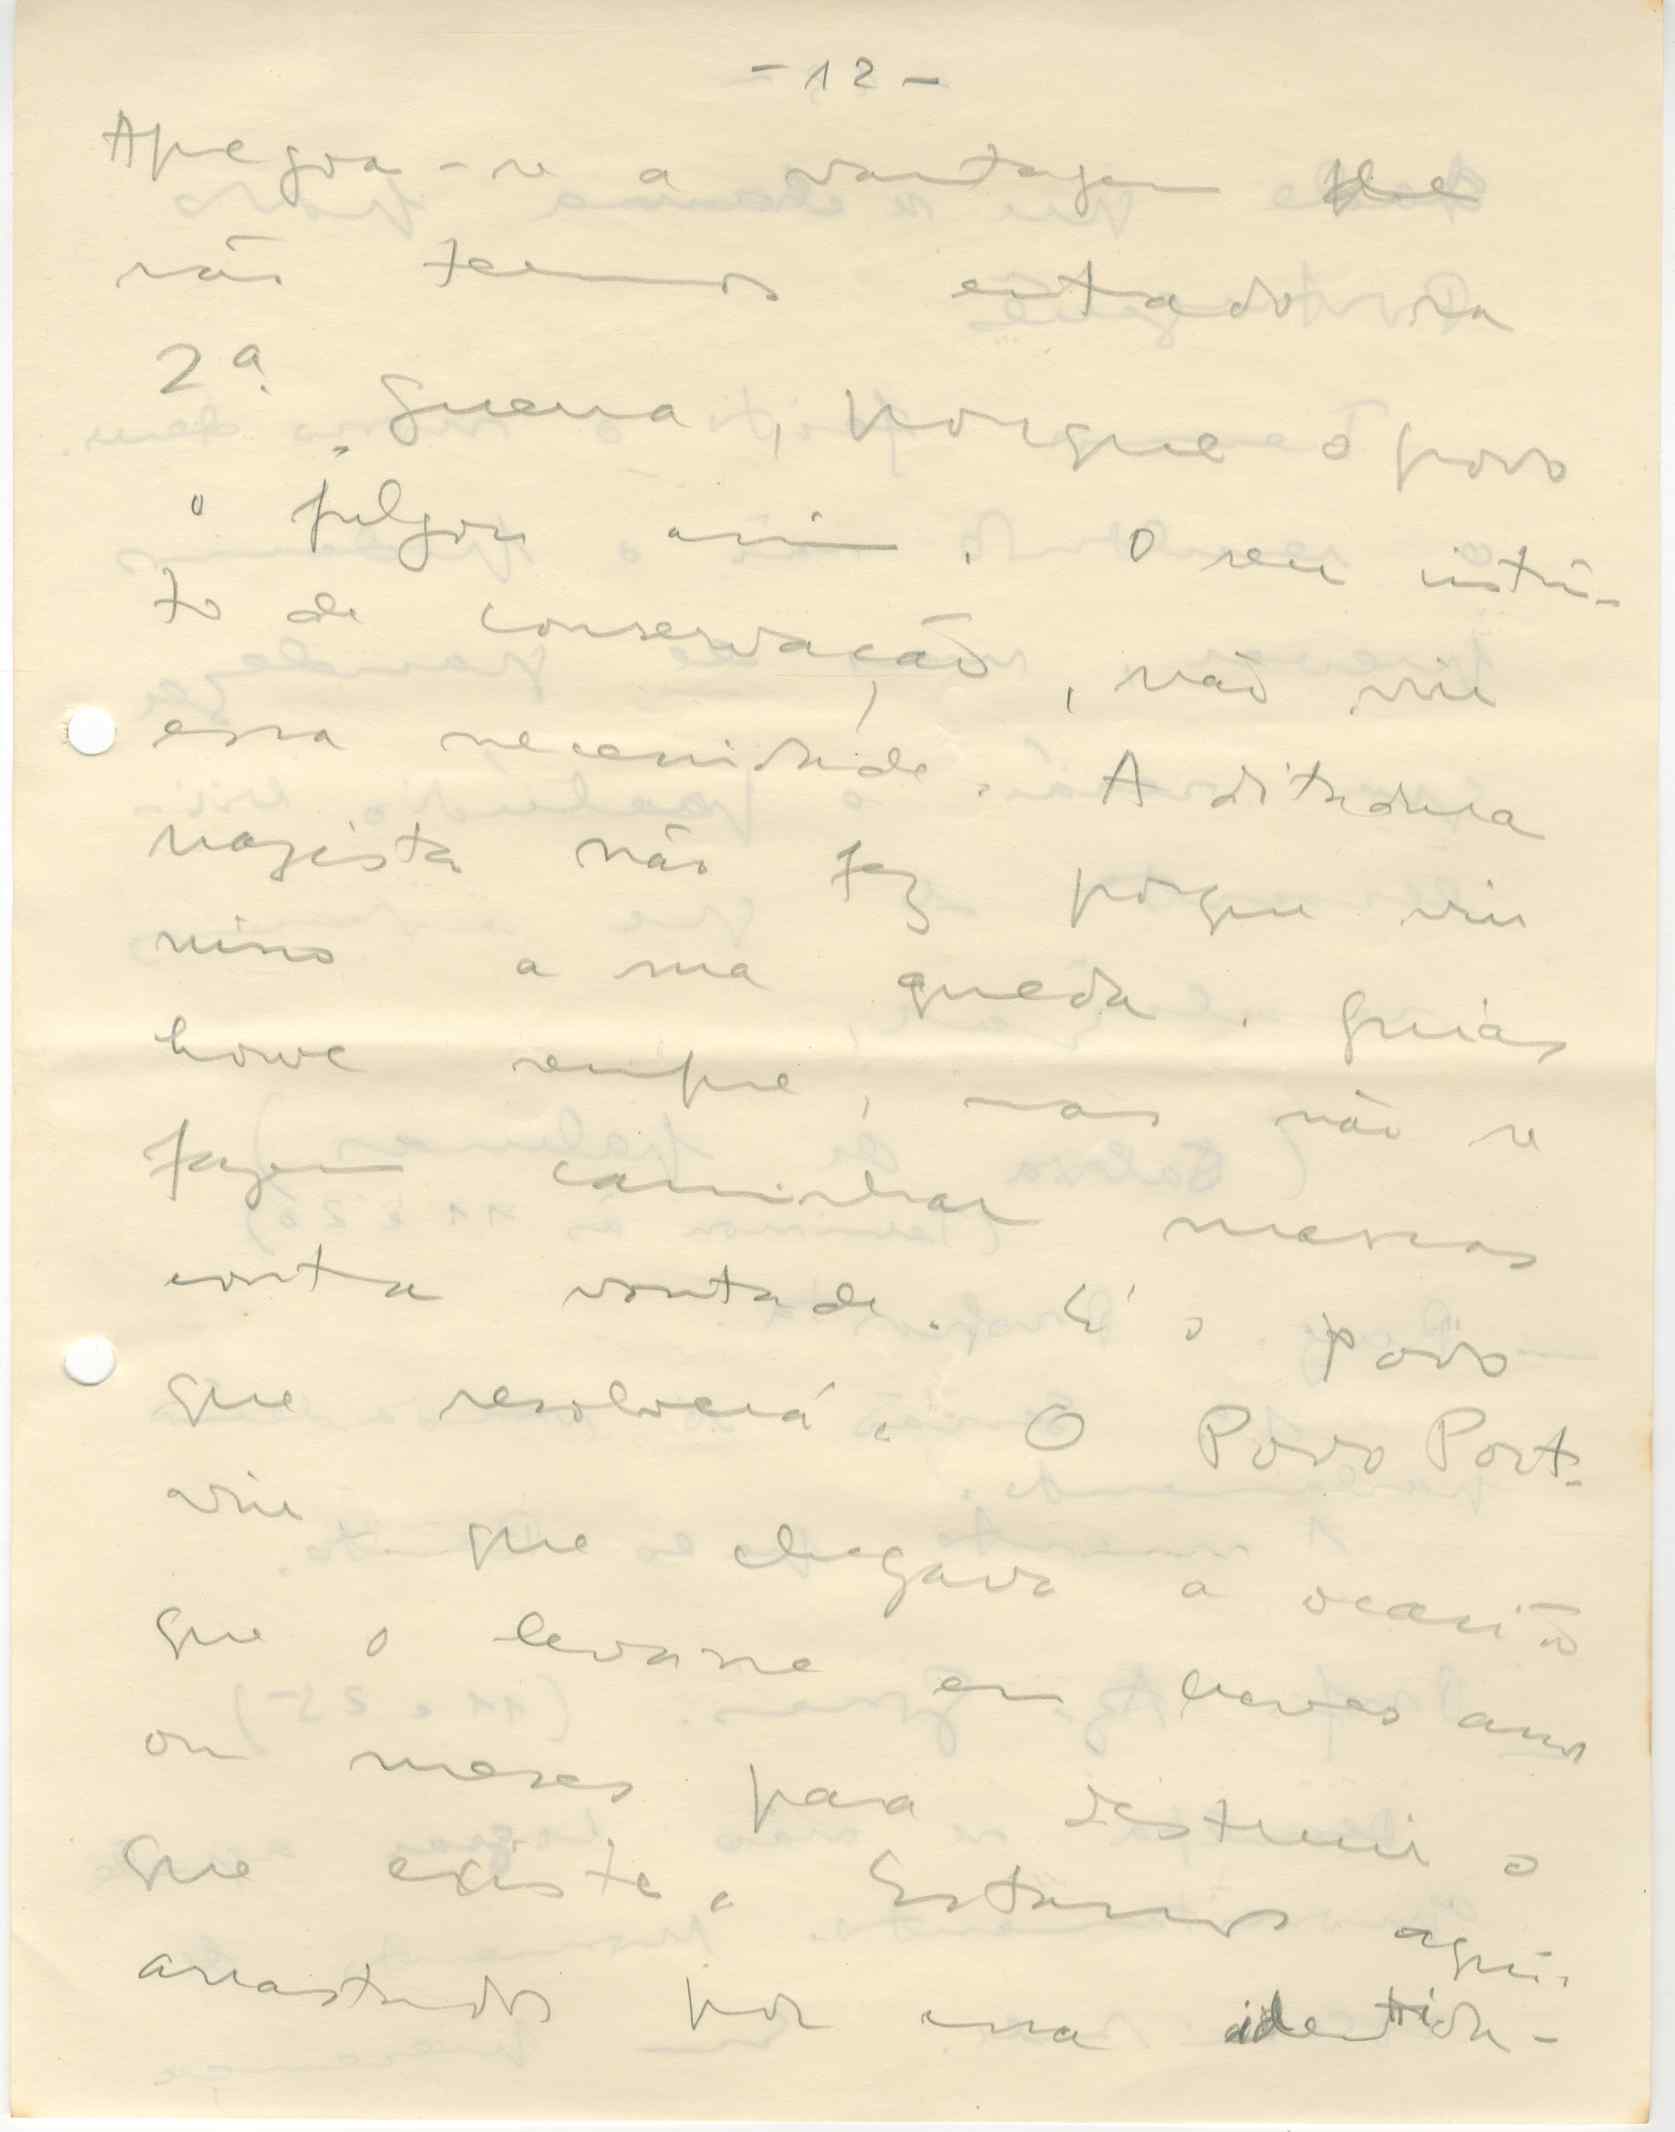 - 12 -
Apegoa-se a vantagem de
não termos entado na
2ª Guerra, porque o povo
o julgou assim. O seu instin-
to de conservação, não viu
essa necessidade. A ditadura
nazista não fez porque viu
nisso a sua queda. Guias
houve sempre, mas não se
fazem caminhar massas
contra vontade. É o povo
que resolverá. O Povo Port.
viu que chegava a ocasião
que o levasse em breves anos
ou meses para destruir o
que existe. Estamos aqui
arrastados por uma identida-